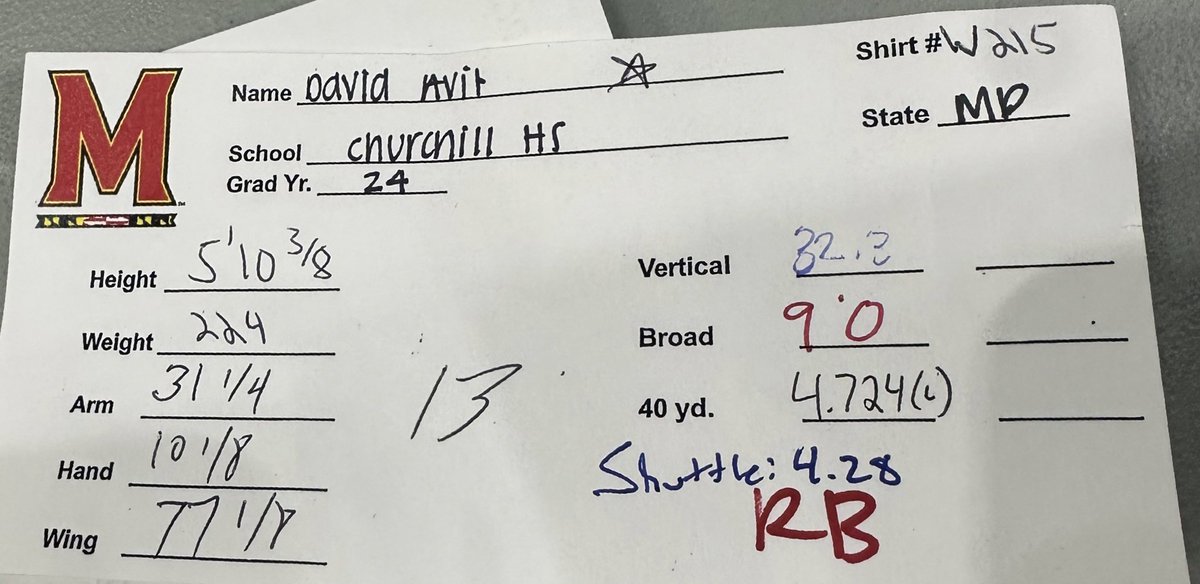 Shirt # W215
Name David Avit
State MD
School Churchill HS
Grad Yr. 24
M
Height 5'10 3/8
Vertical 32.3
Weight 224
Broad 9'0
Arm 31 1/4
13
40 yd. 4.724(L)
Hand 10 1/8
Shuttle: 4.28
RB
Wing 77 1/8